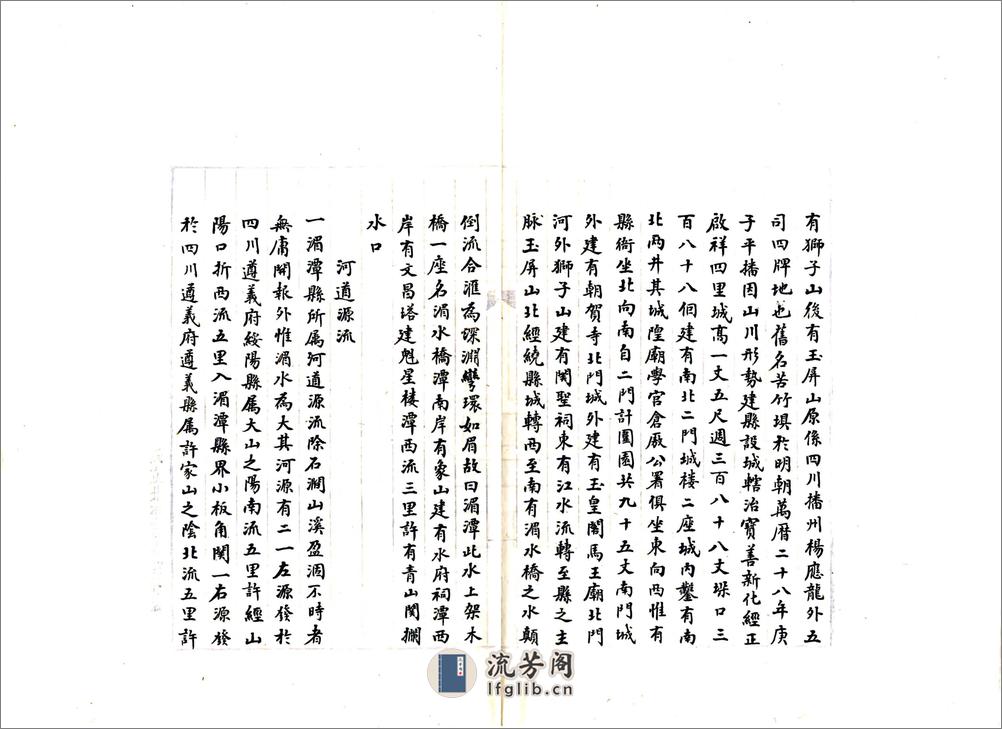 有獅子山後有玉屏山原係四川播州楊應龍外五
司四牌地也舊名苦竹垻於明朝萬曆二十八年庚
子平播因山川形勢建縣設城轄治寶善新化經正
啟祥四里城高一丈五尺週三百八十八丈垛口三
百八十八個建有南北二門城樓二座城內鑿有南
北兩井其城隍廟學官倉廒公署俱坐東向西惟有
縣衙坐北向南自二門計圍圓共九十五丈南門城
外建有朝賀寺北門城外建有玉皇閣馬王廟北門
河外獅子山建有関聖祠東有江水流轉至縣之主
脉玉屏山北經繞縣城轉西至南有湄水橋之水顛
倒流合滙為深淵彎環如眉故曰湄潭此水上架木
橋一座名湄水橋潭南岸有象山建有水府祠潭西
岸有文昌塔建魁星樓潭西流三里許有青山関攔
水口
河道源流
一湄潭縣所属河道源流除石澗山溪盈涸不時者
無庸開報外惟湄水為大其河源有二一左源發於
四川遵義府綏陽縣属大山之陽南流五里許經山
陽口折西流五里入湄潭縣界小板角関一右源發
於四川遵義府遵義縣属許家山之陰北流五里許
流芳阁
lfglib.cn